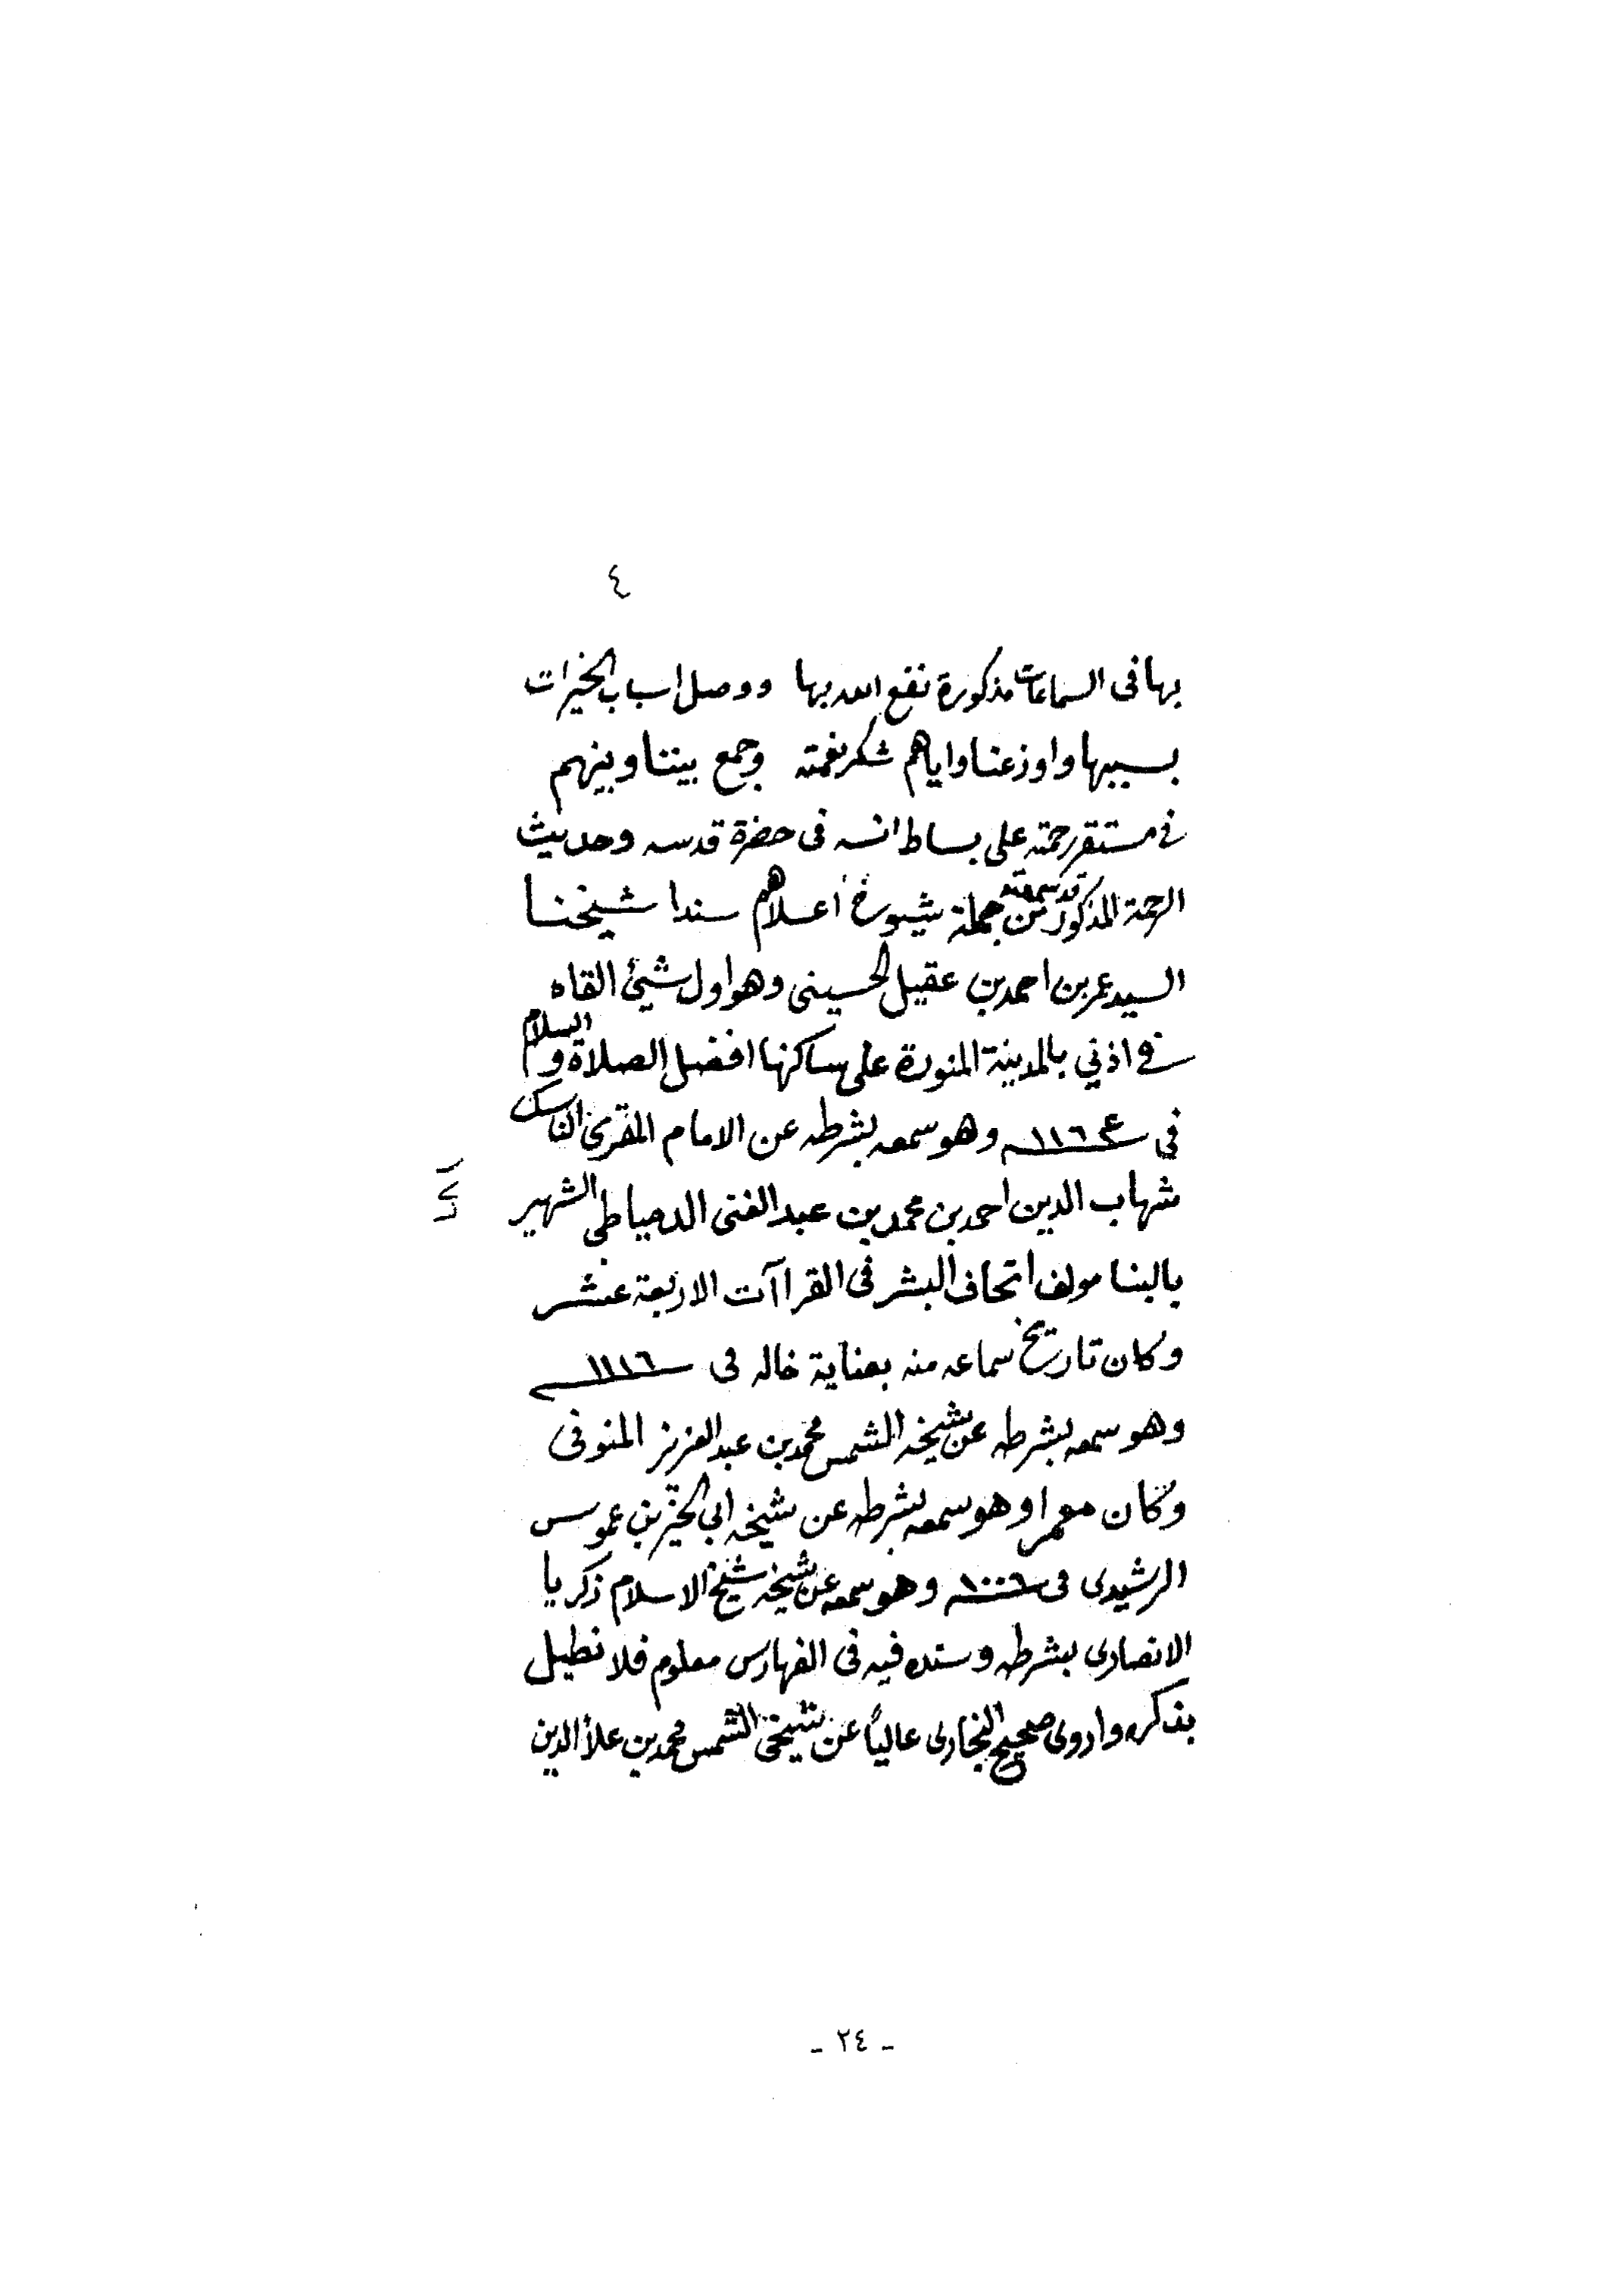 ٤
بها فى السماعات مذكورة نفع الله بها ووصل اسباب الخيرات
بسببها واوزعنا واياهم شكر نعمته وجمع بيننا وبينهم
فى مستقر رحمته على بساط انسه فى حضرة قدسه وحديث
الرحمة المذكور قد سمعته من جملة شيوخ اعلاهم سندا شيخنا
السيد عمر بن احمد بن عقيل الحسينى وهو اول شيئ القاه
فى اذني بالمدينة المنورة على ساكنها افضل الصلاة والسلام
فى ١١٦٤ وهو سمعه بشرطه عن الامام المقرئ الناسك
شهاب الدين احمد بن محمد بن عبد الغنى الدمياطى الشهير
بالبنا مولف اتحاف البشر فى القراآت الاربعة عشر
وكان تاريخ سماعه منه بعناية خاله فى ١١١٦
وهو سمعه بشرطه عن شيخه الشمس محمد بن عبد العزيز المنوفى
وكان معمرا وهو سمعه بشرطه عن شيخه ابي الخير بن عموس
الرشيدى فى ١٠٠٦ وهو سمعه عن شيخه شيخ الاسلام زكريا
الانصارى بشرطه وسنده فيه فى الفهارس معلوم فلا نطيل
بذكره واروى صحيح البخارى عالياً عن شيخى الشمس محمد بن علأ الدين
- ٢٤ -